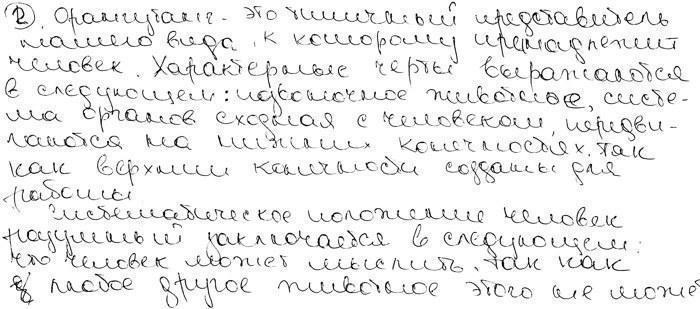 2. Орангутанг - это типичный представитель
нашего вида, к которому принадлежит
человек. Характерные черты выражаются
в следующем: позвоночное животное, систе-
ма органов сходная с человеком, передви-
гаются на нижних конечностях. Так
как верхнии конечности созданы для
работы
Систематическое положение человек
разумный заключается в следующем:
что человек может мыслить. Так как
любое другое животное этого не може